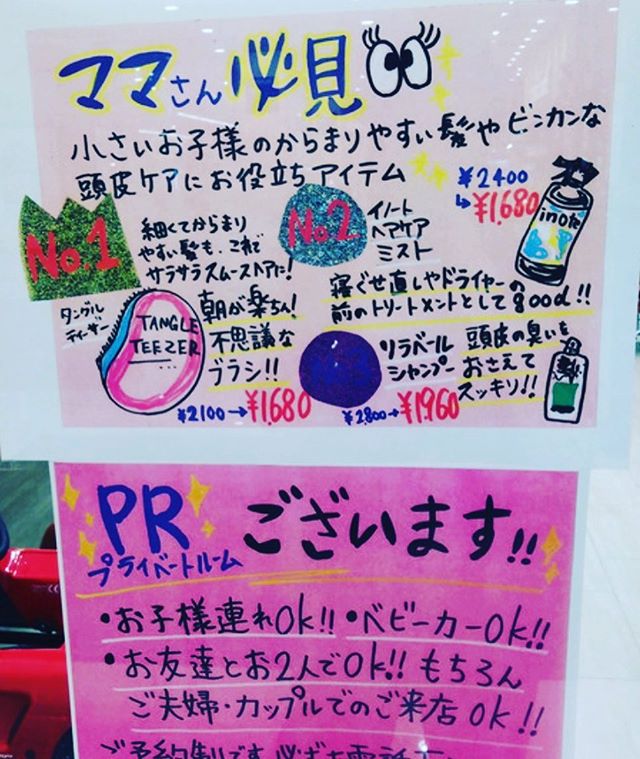 ママさん必見
小さいお子様のからまりやすい髪やビンカンな
頭皮ケアにお役立ちアイテム
No.1
細くてからまり
やすい髪も、これで
サラサラスムースヘアに!
タングル
ティーザー
TANGLE
TEEZER
朝が楽ちん!
不思議な
ブラシ!!
¥2100→¥1,680
No.2
イノート
ヘアケア
ミスト
¥2400
→¥1,680
inote
寝ぐせ直しやドライヤーの
前のトリートメントとしてgood!!
リラベール
シャンプー
頭皮の臭いも
おさえて
スッキリ!!
¥2,800→¥1,960
PR
プライベートルーム
ございます!!
・お子様連れOk!! ・ベビーカーOk!!
・お友達とお2人でOk!! もちろん
ご夫婦・カップルでのご来店 Ok!!
ご予約制です